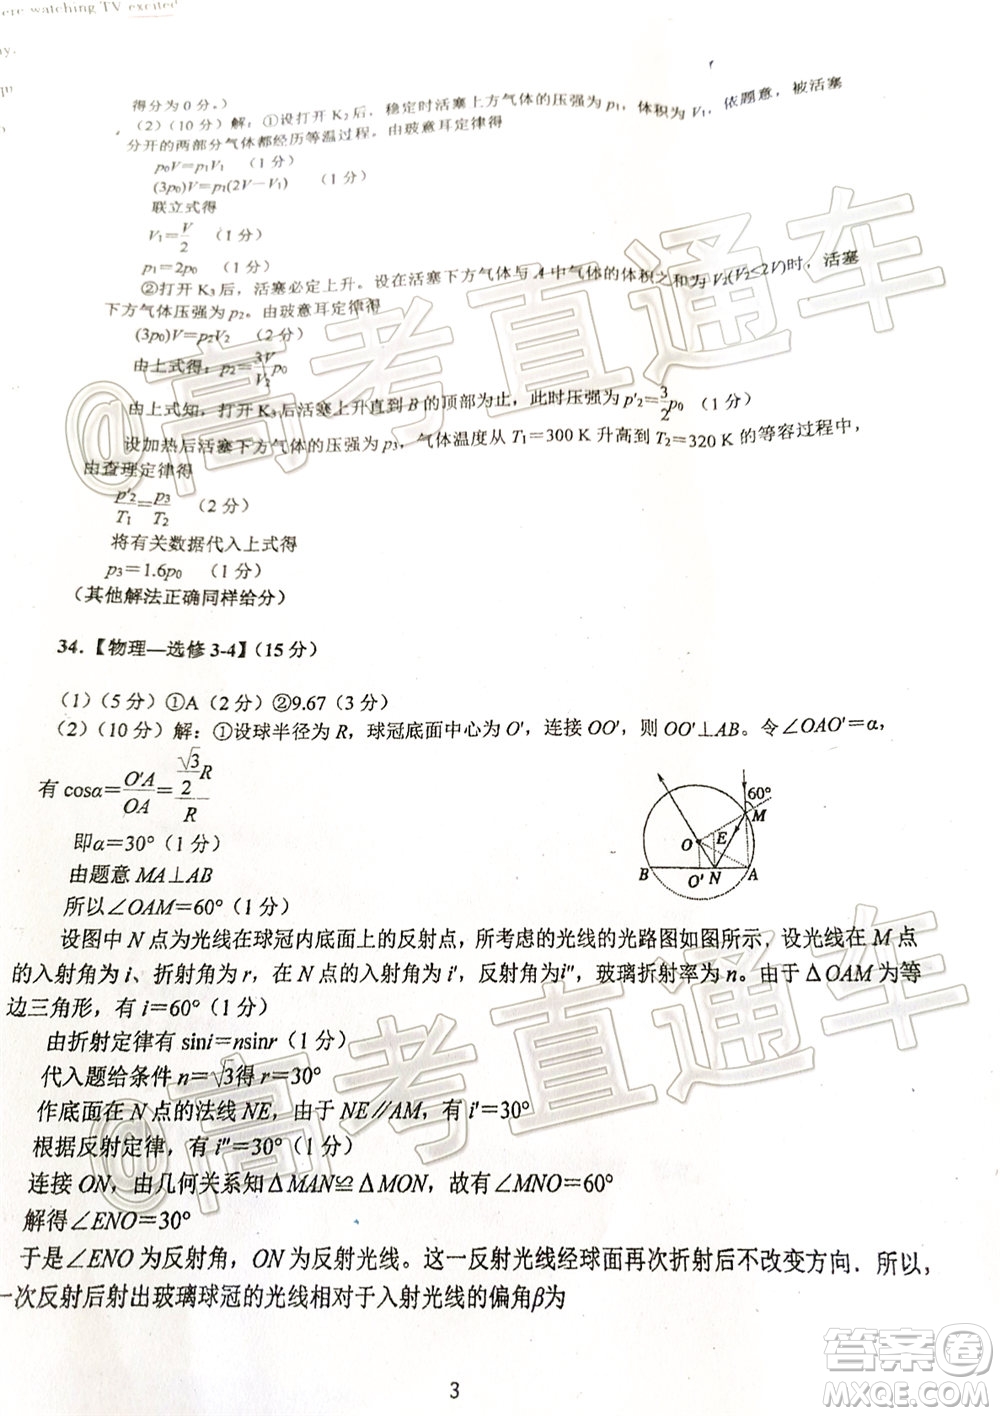 ere watching TV excited
ay.
得分为 0 分。)
(2)(10 分)解:①设打开 K₂后,稳定时活塞上方气体的压强为 p₁,体积为 V₁,依题意,被活塞
分开的两部分气体都经历等温过程。由玻意耳定律得
p₀V=p₁V₁ (1 分)
(3p₀)V=p₁(2V-V₁) (1 分)
联立式得
V₁=V/2 (1 分)
p₁=2p₀ (1 分)
②打开 K₃后,活塞必定上升。设在活塞下方气体与 A 中气体的体积之和为 V₂(V₂≤2V)时,活塞
下方气体压强为 p₂。由玻意耳定律得
(3p₀)V=p₂V₂ (2 分)
由上式得:p₂=3V/V₂ p₀
由上式知,打开 K₃后活塞上升直到 B 的顶部为止,此时压强为 p'₂=3/2 p₀ (1 分)
设加热后活塞下方气体的压强为 p₃,气体温度从 T₁=300 K 升高到 T₂=320 K 的等容过程中,
由查理定律得
p'₂/T₁=p₃/T₂ (2 分)
将有关数据代入上式得
p₃=1.6p₀ (1 分)
(其他解法正确同样给分)
34.【物理—选修 3-4】(15 分)
(1)(5 分)①A(2 分)②9.67(3 分)
(2)(10 分)解:①设球半径为 R,球冠底面中心为 O',连接 OO',则 OO'⊥AB。令∠OAO'=α,
有 cosα=O'A/OA=(√3/2 R)/R
即α=30°(1 分)
由题意 MA⊥AB
所以∠OAM=60°(1 分)
60°
M
E
O
B
O'
N
A
设图中 N 点为光线在球冠内底面上的反射点,所考虑的光线的光路图如图所示.设光线在 M 点
的入射角为 i、折射角为 r,在 N 点的入射角为 i',反射角为 i″,玻璃折射率为 n。由于△OAM为等
边三角形,有 i=60°(1 分)
由折射定律有 sini=nsinr(1 分)
代入题给条件 n=√3得 r=30°
作底面在 N 点的法线 NE,由于 NE∥AM,有 i'=30°
根据反射定律,有 i″=30°(1 分)
连接 ON,由几何关系知△MAN≌△MON,故有∠MNO=60°
解得∠ENO=30°
于是∠ENO 为反射角,ON 为反射光线。这一反射光线经球面再次折射后不改变方向.所以,
一次反射后射出玻璃球冠的光线相对于入射光线的偏角β为
3
@高考直通车
@高考直通车
答案卷
MXQE.COM